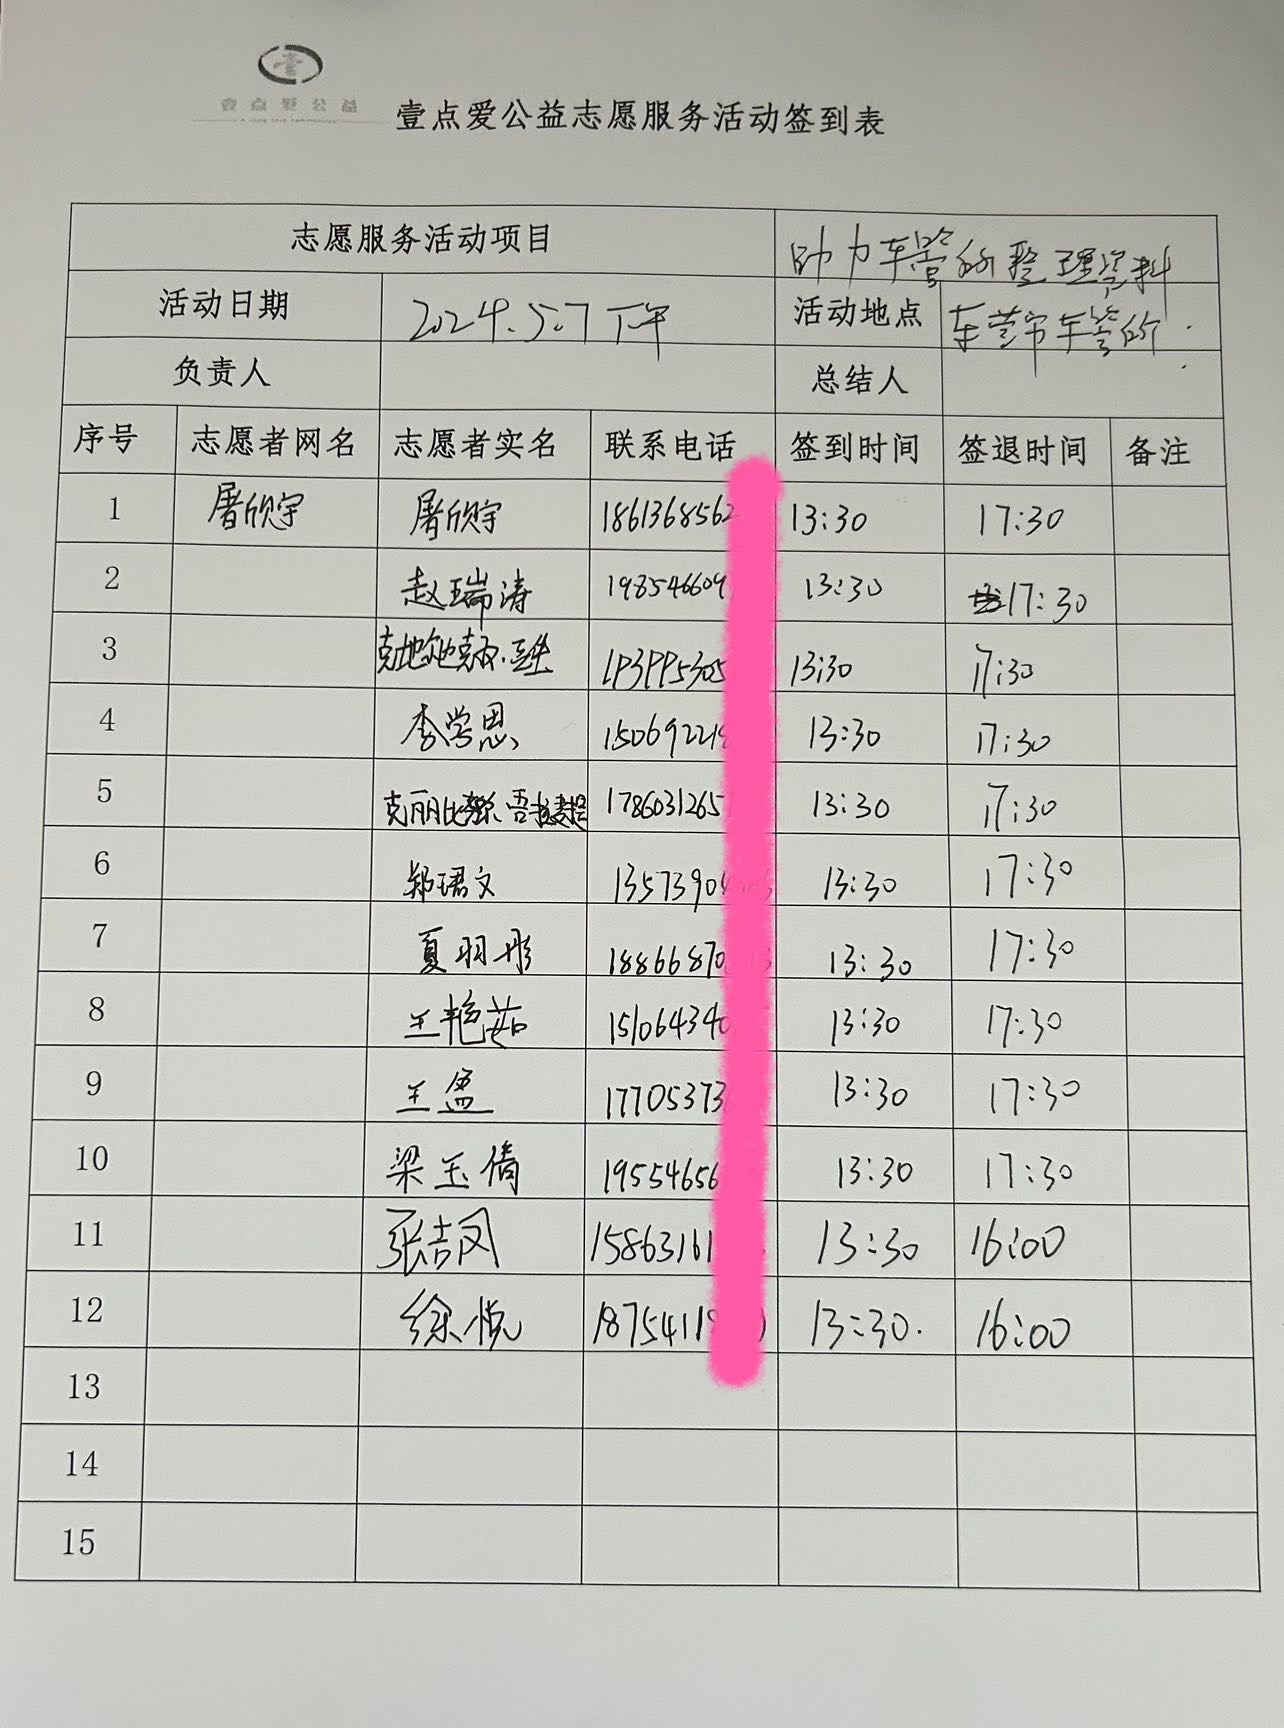 壹点爱公益
壹点爱公益志愿服务活动签到表
志愿服务活动项目 助力车管所整理资料
活动日期 2024.5.7下午 活动地点 东营市车管所
负责人 总结人
序号 志愿者网名 志愿者实名 联系电话 签到时间 签退时间 备注
1 屠欣宇 屠欣宇 1861368562 13:30 17:30
2 赵瑞涛 198546609 13:30 17:30
3 13:30 17:30
4 李学思 150692219 13:30 17:30
5 1786031265 13:30 17:30
6 郑珺文 13573904 13:30 17:30
7 夏羽彤 18866870 13:30 17:30
8 王艳茹 151064340 13:30 17:30
9 王孟 17705373 13:30 17:30
10 梁玉倩 19554656 13:30 17:30
11 张吉凤 15863161 13:30 16:00
12 徐悦 18754119 13:30. 16:00
13
14
15